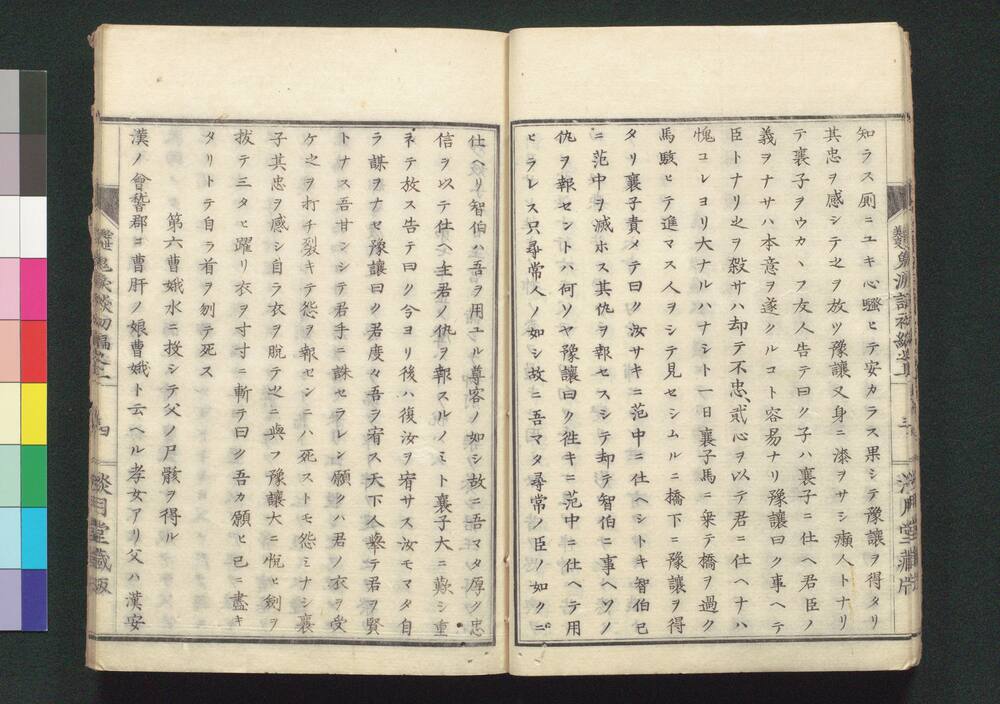 知ラス厠ニユキ心騒ヒテ安カラス果シテ豫讓ヲ得タリ
其忠ヲ感シテ之ヲ放ツ豫讓又身ニ漆ヲサシ癩人トナリ
テ襄子ヲウカヽフ友人告テ曰ク子ハ襄子ニ仕ヘ君臣ノ
義ヲナサハ本意ヲ遂クルコト容易ナリ豫讓曰ク事ヘテ
臣トナリ之ヲ殺サハ却テ不忠、貳心ヲ以テ君ニ仕ヘナハ
愧コレヨリ大ナルハナシト一日襄子馬ニ乗テ橋ヲ過ク
馬駭ヒテ進マス人ヲシテ見セシムルニ橋下ニ豫讓ヲ得
タリ襄子責メテ曰ク汝サキニ范中ニ仕ヘシトキ智伯已
ニ范中ヲ滅ホス其仇ヲ報セスシテ却テ智伯ニ事ヘソノ
仇ヲ報セントハ何ソヤ豫讓曰ク徃キニ范中ニ仕ヘテ用
ヒラレス只尋常人ノ如シ故ニ吾マタ尋常ノ臣ノ如クニ
三
仕ヘリ智伯ハ吾ヲ用ユル尊客ノ如シ故ニ吾マタ厚ク忠
信ヲ以テ仕ヘ主君ノ仇ヲ報スルノミト襄子大ニ歎シ重
子テ放ス告テ曰ク今ヨリ後ハ復汝ヲ宥サス汝モマタ自
ラ謀ヲナセ豫讓曰ク君度々吾ヲ宥ス天下人擧テ君ヲ賢
トナス吾甘ンシテ君手ニ誅セラレン願クハ君ノ衣ヲ受
ケ之ヲ打チ裂キテ怨ヲ報センニハ死ストモ怨ミナシ襄
子其忠ヲ感シ自ラ衣ヲ脱テ之ニ與フ豫讓大ニ悦ヒ劍ヲ
拔テ三タヒ躍リ衣ヲ寸寸ニ斬テ曰ク吾カ願ヒ已ニ盡キ
タリトテ自ラ首ヲ刎テ死ス
第六曹娥水ニ投シテ父ノ尸骸ヲ得ル
漢ノ會誓郡ニ曹肝ノ娘曹娥ト云ヘル孝女アリ父ハ漢安
四